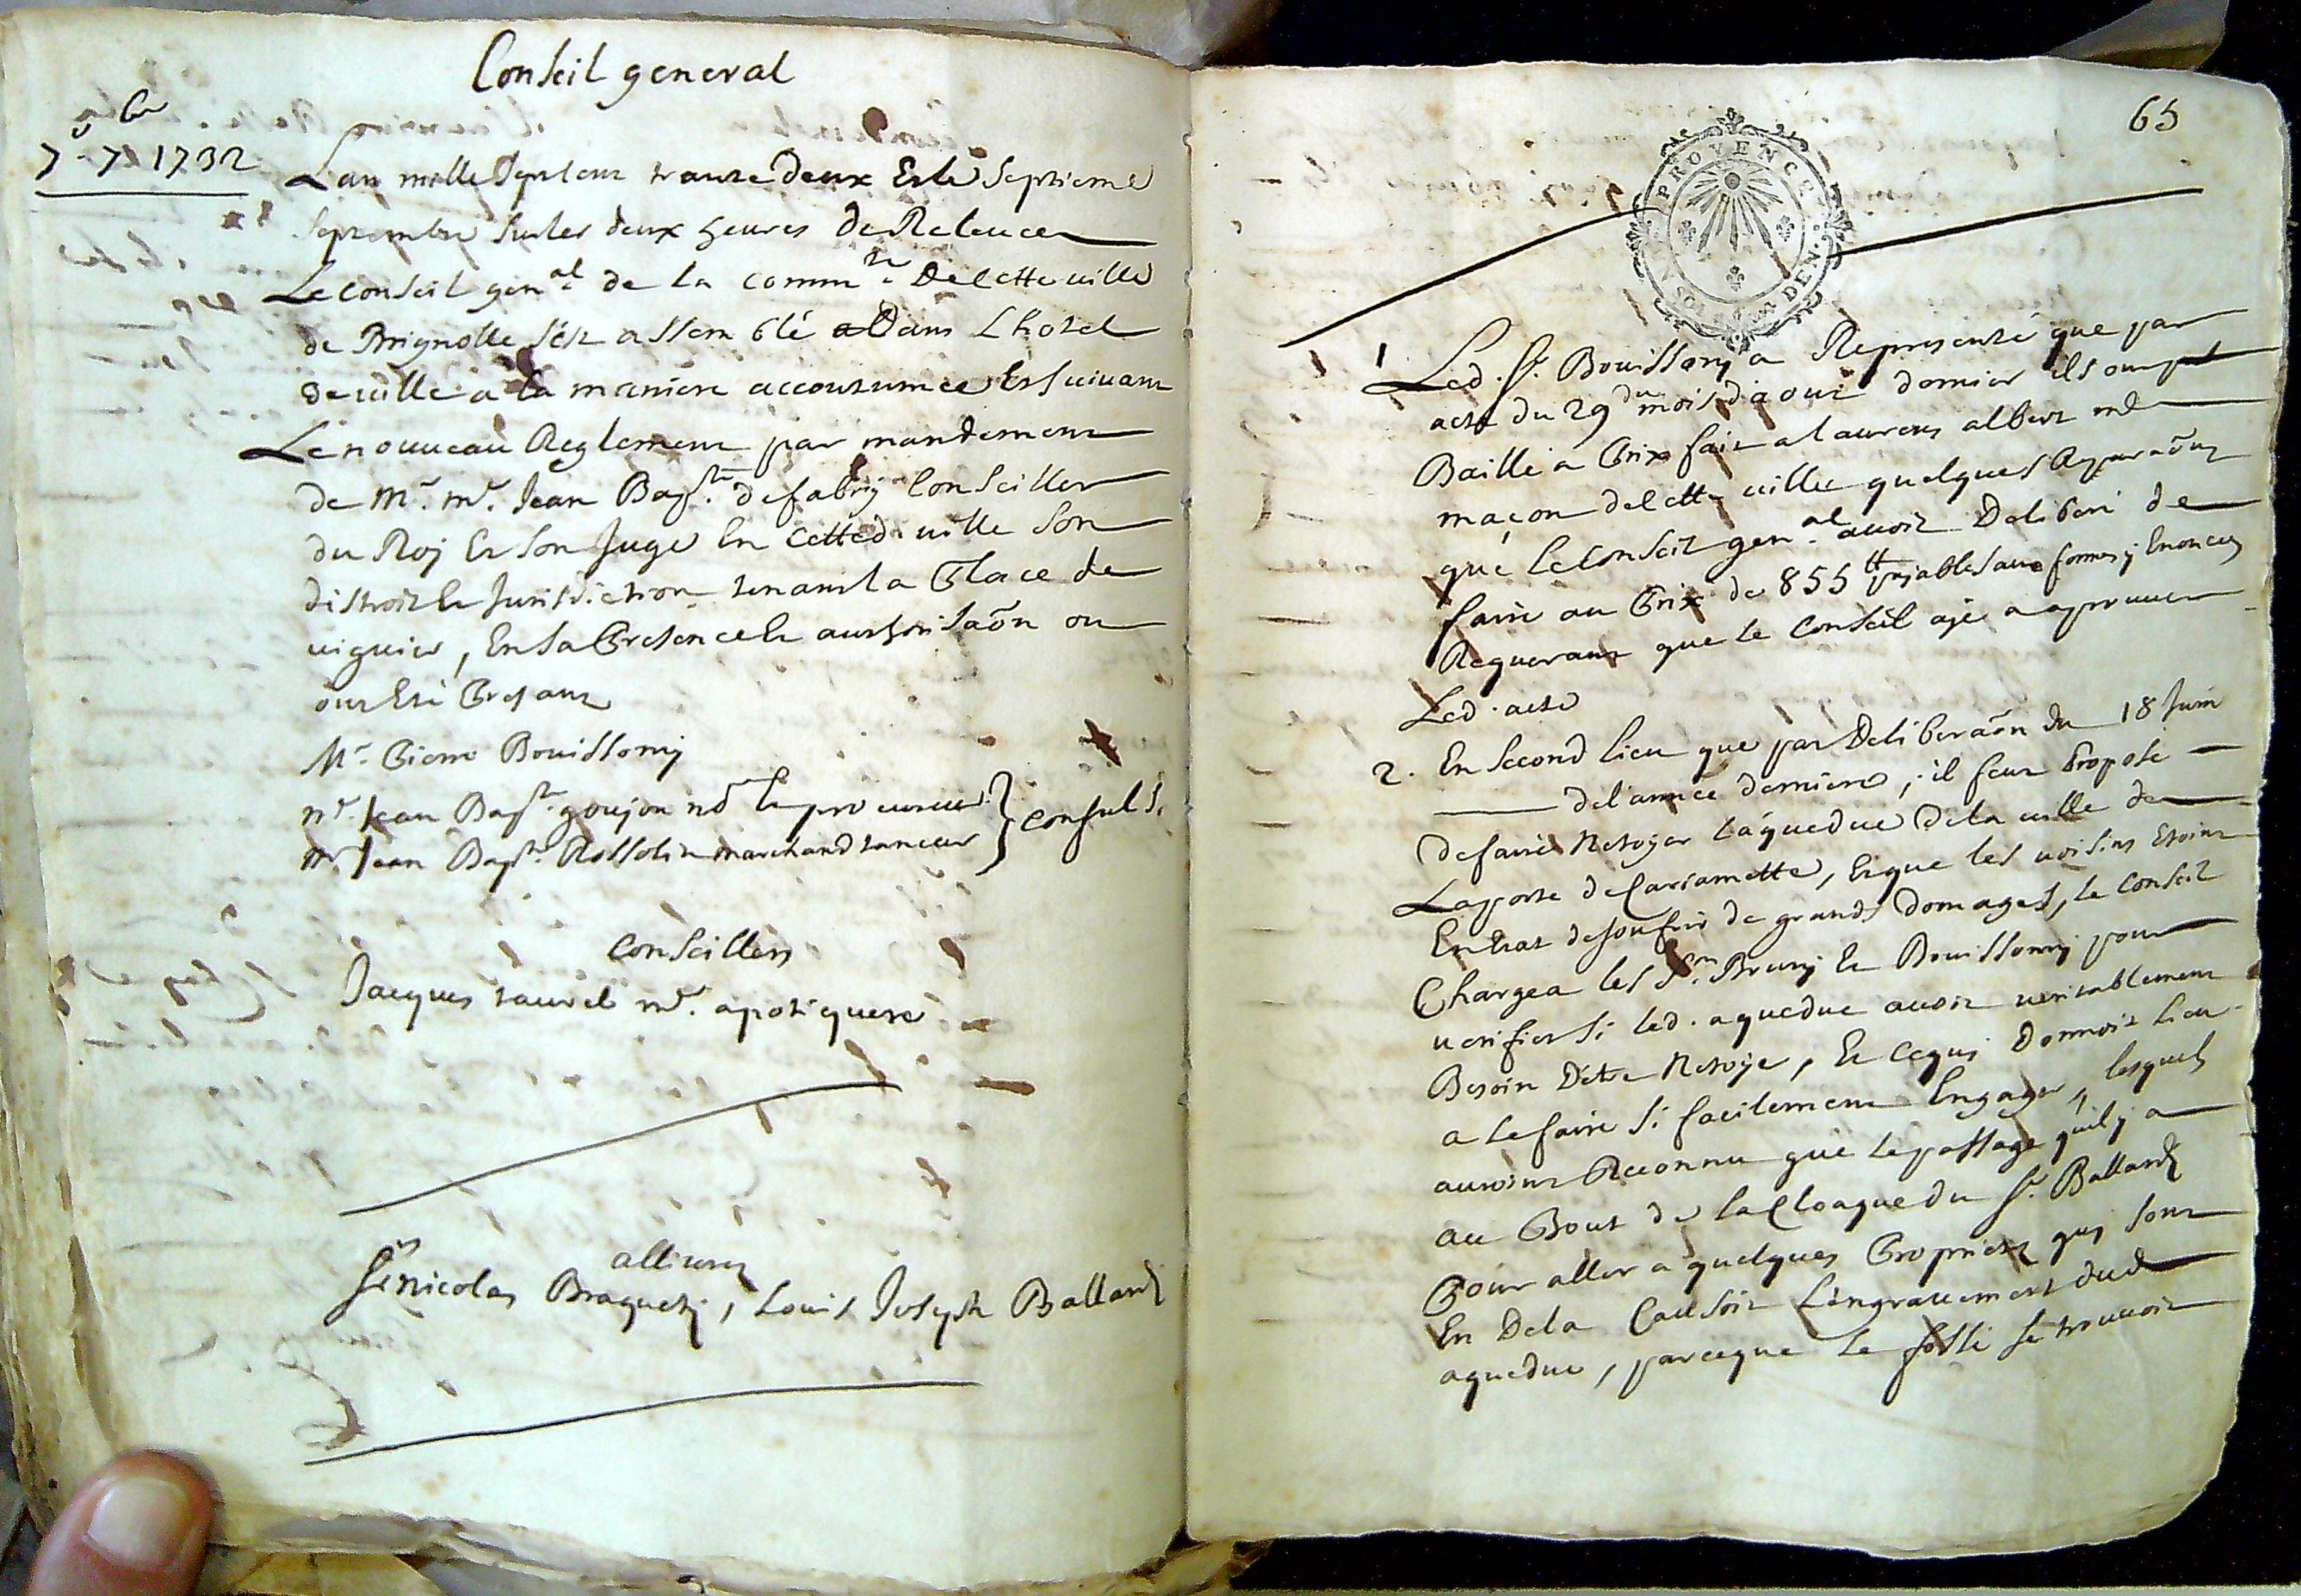 Conseil general
7.e 7bre 1732
Lan mille sept cens trante deux Et le septieme
septembre sur les deux heures de Relevée
Le conseil gen.al de la comm.té de cette ville
de Brignolle sést assemblé dans Lhotel
de ville a la maniere accoutumée Et suivant
Le nouveau Reglement par mandement
de Mr. mr. Jean Bapt.e de fabry Conseiller
du Roy Et son Juge En cetted. ville son
distroit Et Jurisdiction tenant la Place de
viguier, En sa Presence Et authorisaôn ou
ont Eté Presant
Mr. Pierre Bouissony
mr. Jean Bapt.e goujon nore Et procureur
mr. Jean Bapt.e Rossolin marchand tanneur } Consuls.
Conseillers
Jacques taurel mre. apotiquere
allivrez
Sr. nicolas Braquety, Louis Joseph Ballardy
65
PROVENCE
1 Led. Sr. Bouissony a Representé que par
acte du 29 du mois d'aout dernier ils ont
Baillé a Prix fait a Laurens albert me
maçon de cette ville quelques Reparaôns
que le Conseil gen.al avoit Deliberé de
faire au Prix de 855 tt payables aux formes y Enoncees
Requerant que le Conseil aye a aprouver
Led. acte
2. En second lieu que par Deliberaôn du 18 Juin
de l'année derniere, il feut Proposé
de faire Netoyer l'aqueduc de la ville de
La porte de Cariamette, Et que les voisins Etoint
En Etat de soufrir de grands domages, le Conseil
Chargea les Srs. Bruny Et Bouissony pour
verifier si led. aqueduc avoit veritablement
Besoin D'étre Netoyé, Et ce qui Donnoit Lieu
a le faire si facilement Engager, lesquels
auroint Reconnu que le passage quil y a
au Bout de la Cloaque du Sr. Ballardy
Pour aller a quelques Proprietez qui sont
En Dela Causoit L'engravement dud.
aqueduc, parceque le fossé se trouvoit